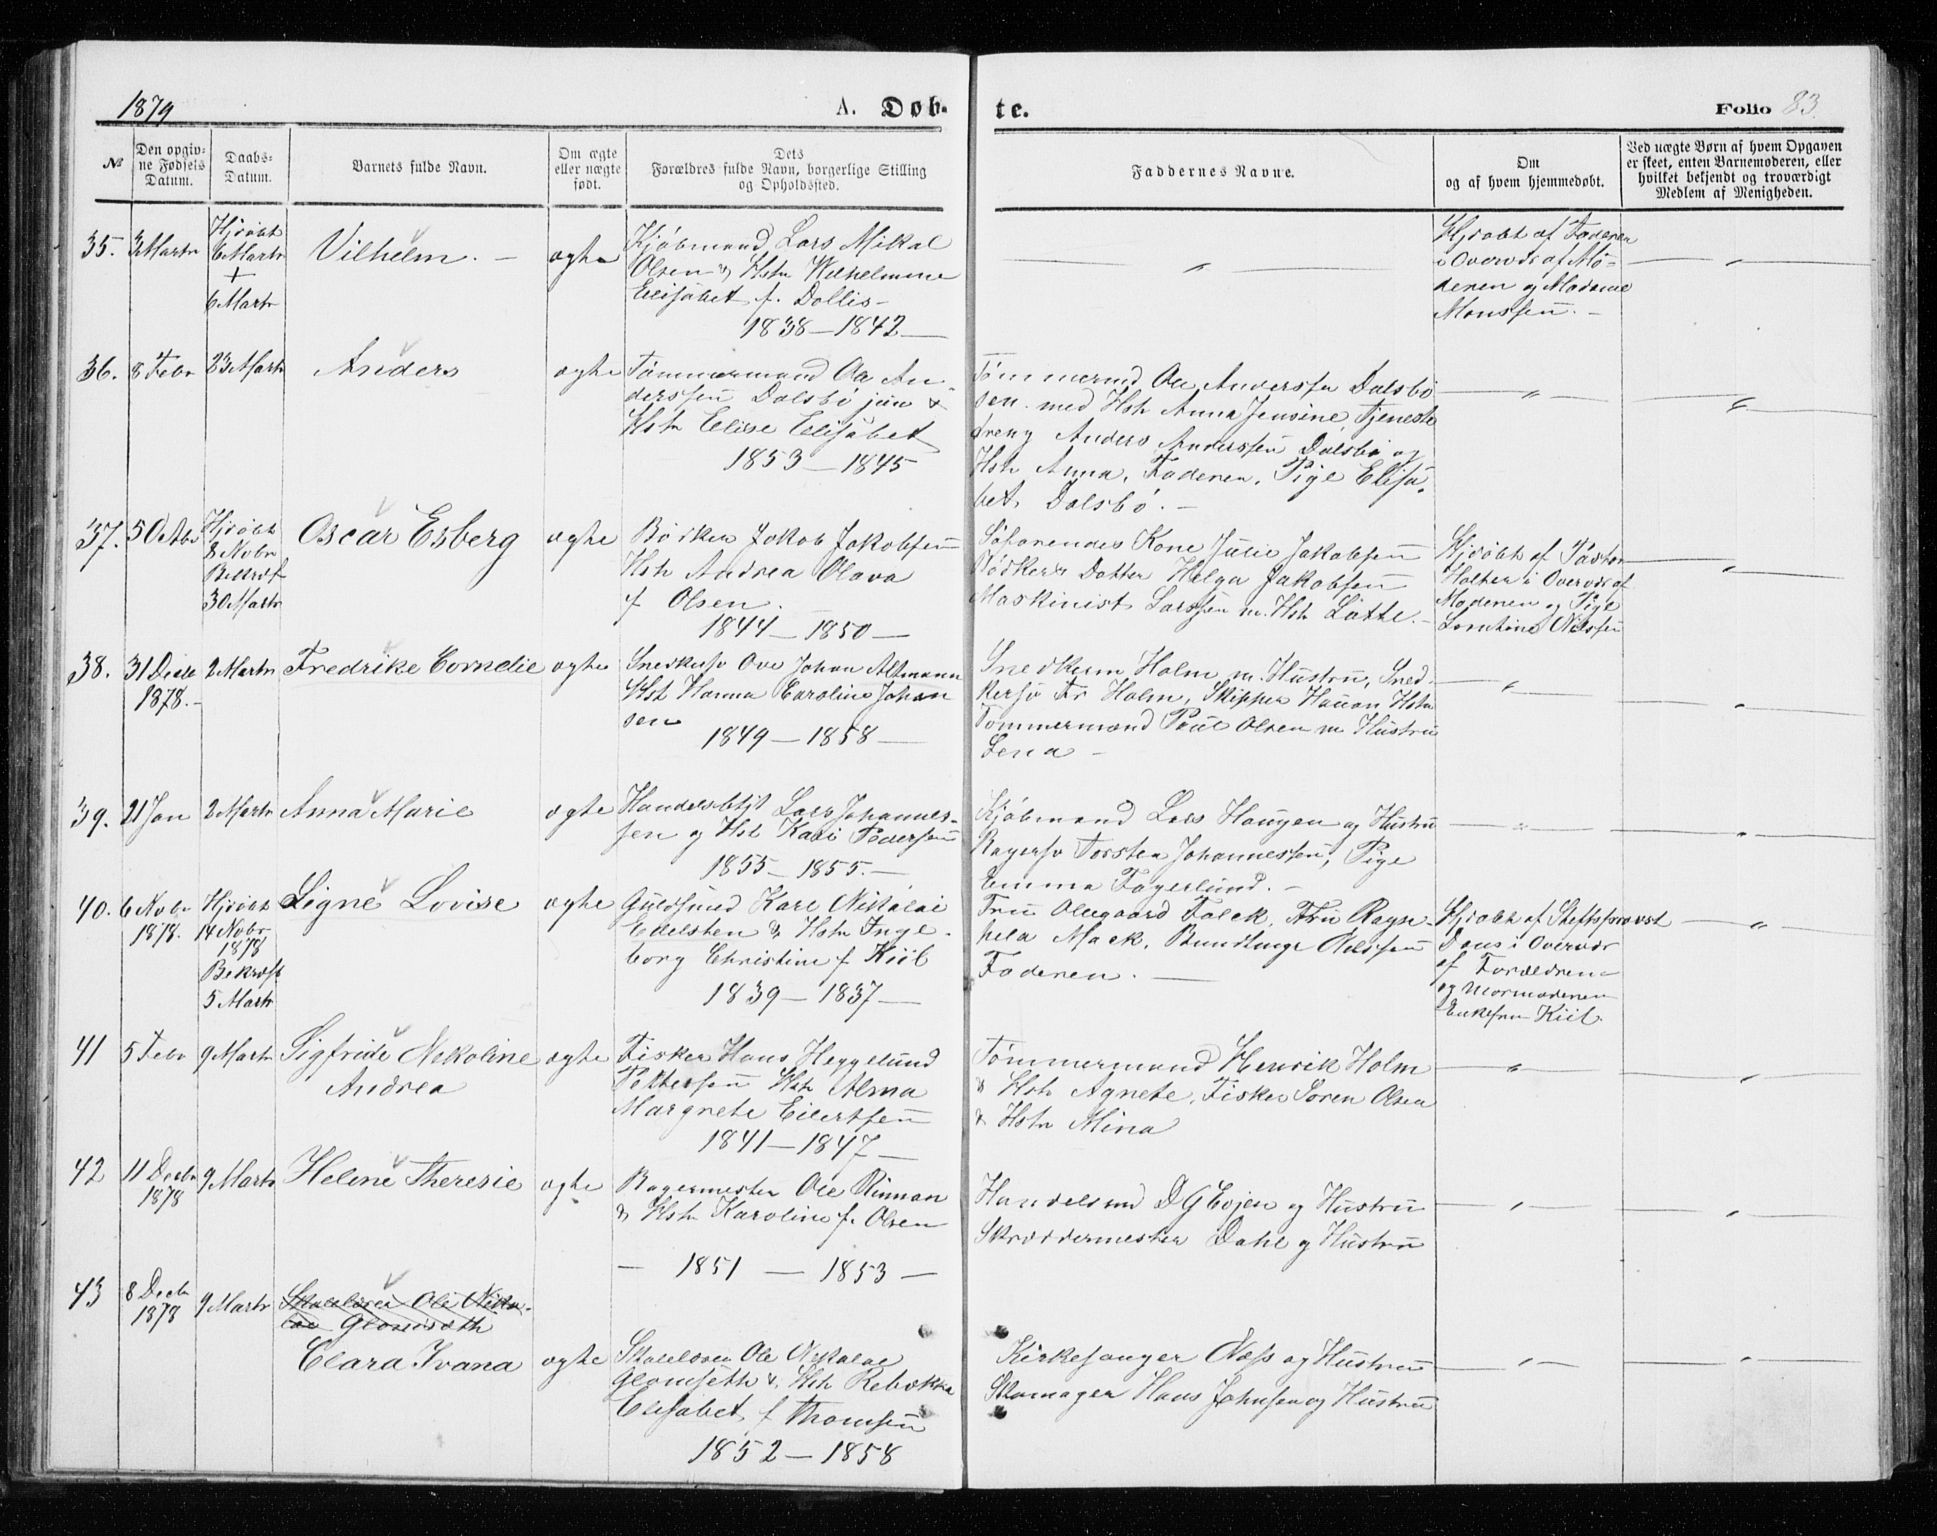 1879
A. Døb-
te.
Folio 83.
№
Den opgiv-
ne Fødsels
Datum.
Daabs-
Datum.
Barnets fulde Navn.
Om ægte
eller uægte
født.
Dets
Forældres fulde Navn, borgerlige Stilling
og Opholdssted.
Faddernes Navne.
Om
og af hvem hjemmedøbt.
Ved uægte Børn af hvem Opgaven
er skeet, enten Barnemoderen, eller
hvilket bekjendt og troværdigt
Medlem af Menigheden.
35.
3 Marts
Hjdøbt
6 Marts
+
6 Marts
Vilhelm. -
ægte
Kjøbmand Lars Mikal
Olsen & Hstr Wilhelmine
Elisabet f. Dollis -
1838 - 1842 -
Hjdøbt af Faderen
i Overvær af Mo-
deren og Madame
Monssen. -
36.
8 Febr
23 Marts
Anders
ægte
Tømmermand Ole An-
derssen Dalsbø jun &
Hstr Elise Elisabet
1853 - 1845
Tømmermd Ole Anderssen Dalsbø
sen. med Hstr Anna Jensine, Tjeneste
dreng Anders Anderssen Dalsbø og
Hstr Anna, Faderen, Pige Elisa-
bet Dalsbø. -
37.
5 Octbr
Hjdøbt
8 Novbr
Bekræf
30 Marts
Oscar Esberg
ægte
Bødker Jakob Jakobsen
Hstr Andrea Olava
f Olsen.
1844 - 1850 -
Søfarendes Kone Julie Jakobsen
Bødkers Datter Helga Jakobsen
Maskinist Larssen m. Hstr Lotte. -
Hjdøbt af Pastor
Holter i Overvær af
Moderen og Pige
Nilssen
38.
31 Decbr
1878. -
2 Marts
Fredrike Cornelie
ægte
Snedkersv Ove Johan Altmann
Hstr Hanna Caroline Johan
sen
1849 - 1858 -
Snedkerm Holm m. Hustru, Sned-
kersv Fr Holm, Skipper Hauan Hstr
Tømmermand Poul Olsen m Hustru
Lena -
39.
21 Jan
2 Marts
Anna Marie
ægte
Handelsbetjt Lars Johannes-
sen og Hst Kari Pedersen
1855 - 1855. -
Kjøbmand Lars Haugen og Hustru
Bagersv Torsten Johannessen, Pige
Emma Fagerlund. -
40.
6 Novbr
1878.
Hjdøbt
14 Novbr
1878
Bekræft
5 Marts
Signe Lovise
ægte
Guldsmed Karl Nikolai
Edelsten & Hstr Inge-
borg Christine f Kiil
1839 - 1837 -
Fru Ollegaard Falck, Fru Ragn-
hila Mack, Nilssen
Faderen. -
Hjdøbt af Stiftsprovst
Daus i Overvær
af Forældrene
og Mormoderen
Enkefru Kiil.
41
5 Febr
9 Marts
Sigfride Nekoline
Andrea
ægte
Fisker Hans Heggelund
Pettersen Hstr Alma
Margrete Eilertsen
1841 - 1847 -
Tømmermand Henrik Holm
& Hstr Agnete, Fisker Søren Olsen
& Hstr Mina
42
11 Decbr
1878
9 Marts
Helene Theresie
ægte
Bagermester Ole Rinnan
& Hstr Karoline f. Olsen
- 1851 - 1853 -
Handelsmd D G Evjen og Hustru
Skræddermester Dahl og Hustru
43
8 Decbr
1878
9 Marts
Skolelærer Ole Niko-
lae Glomseth
Clara Ivana
ægte
Skolelærer Ole Nikolae
Glomseth & Hstr Rebekka
Elisabet f Thomsen
1852 - 1858
Kirkesanger Næss og Hustru
Skomager Hans Johnsen og Hustru